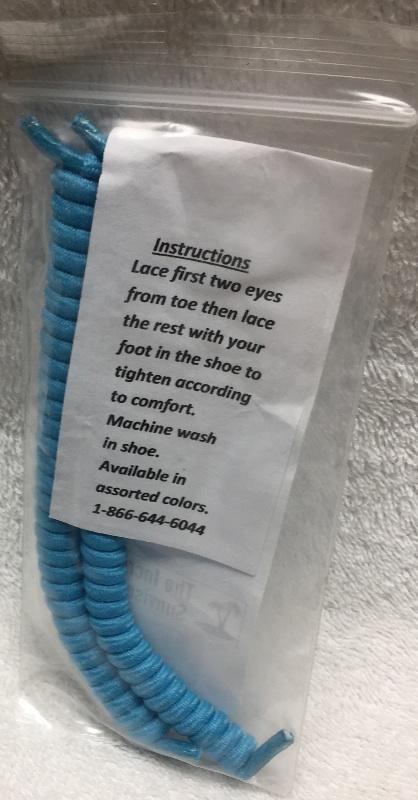 Instructions
Lace first two eyes
from toe then lace
the rest with your
foot in the shoe to
tighten according
to comfort.
Machine wash
in shoe.
Available in
assorted colors.
1-866-644-6044
The